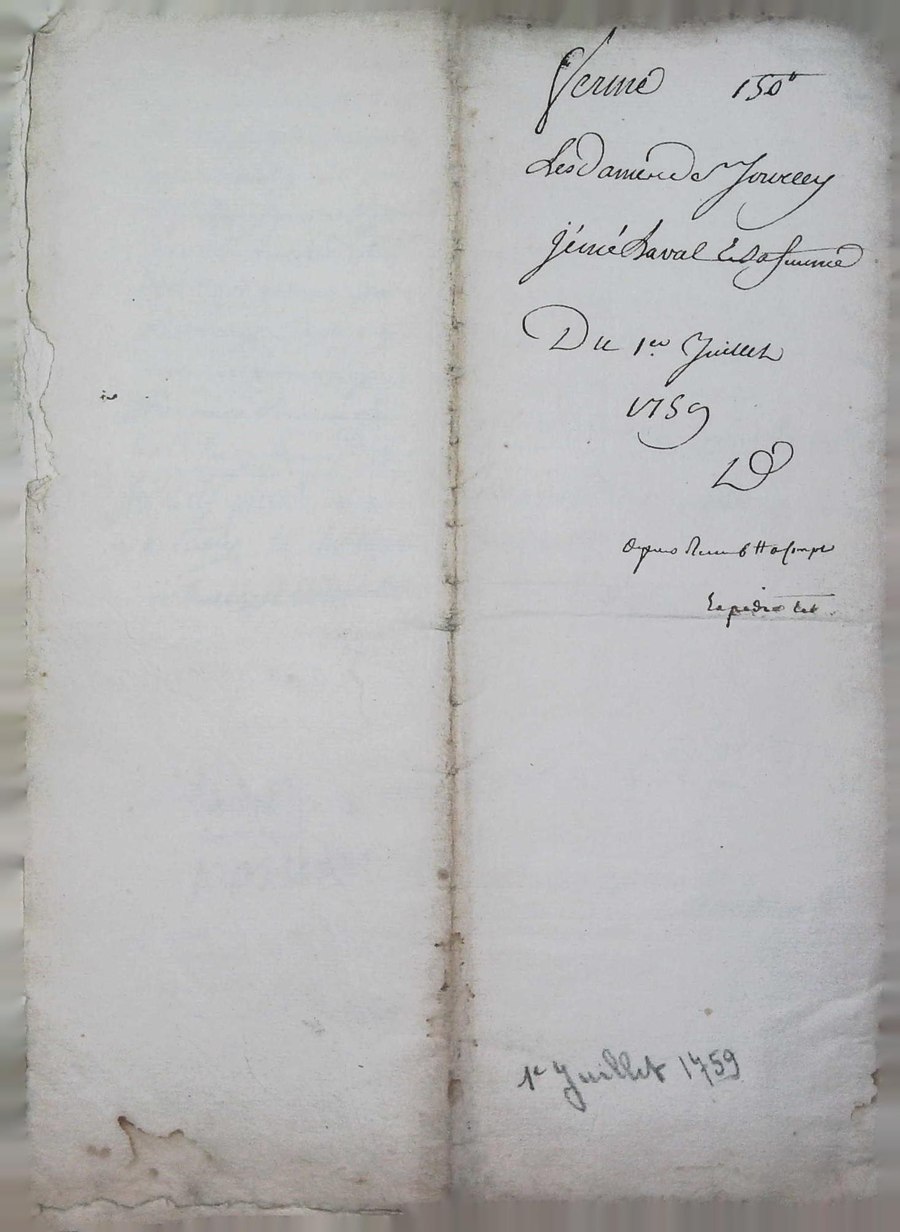 Ferme 150"
Les Dames de Jourcey
Jemé Laval Et sa femme
Du 1er Juillet
1759
Expedié
1er Juillet 1759